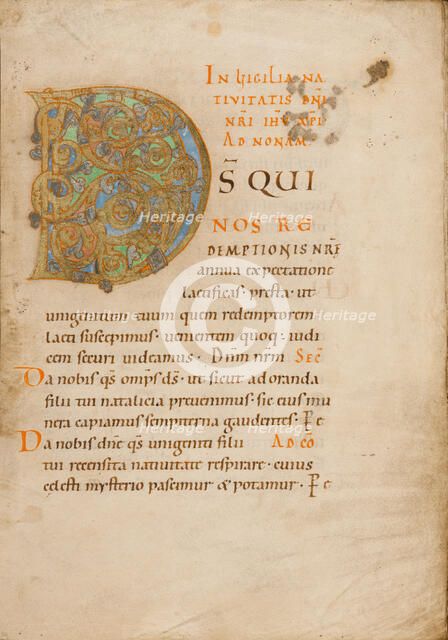 IN VIGILIA NA
TIVITATIS DNI
NRI IHU XPI
AD NONAM
DS QUI
NOS RE
DEMPTIONIS NRE
annua expectatione
laetificas · presta · ut
unigenitum tuum quem redemptorem
laeti suscepimus · uenientem quoq; iudi
cem securi uideamus · Dnm nrm SEC
Da nobis qs omps ds · ut sicut adoranda
filii tui natalicia preuenimus · sic eius mu
nera capiamus sempiterna gaudentes · P e
Da nobis dne qs unigeniti filii AD CO
tui recensita natiuitate respirare · cuius
celesti mysterio pascimur & potamur · P e
Heritage Heritage
Heritage Heritage
Heritage Heritage